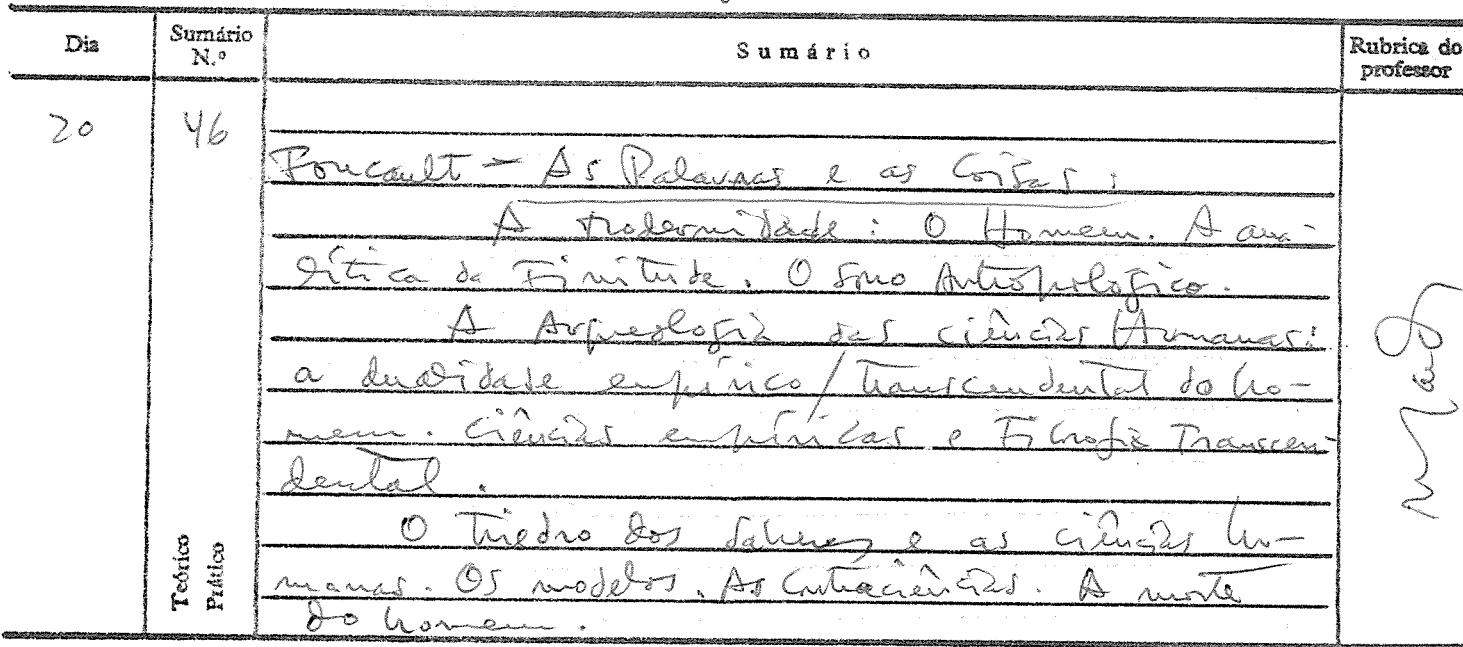 Dia
Sumário N.º
Sumário
Rubrica do professor
20
46
Foucault - As Palavras e as Coisas:
A Modernidade: O Homem. A ana-
lítica da Finitude. O Sono Antropológico.
A Arqueologia das ciências Humanas:
a dualidade empírico/transcendental do ho-
mem. Ciências empíricas e Filosofia Transcen-
dental.
O Triedro dos Saberes e as ciências hu-
manas. Os modelos. As Contraciências. A morte
do homem.
Teórico
Prático